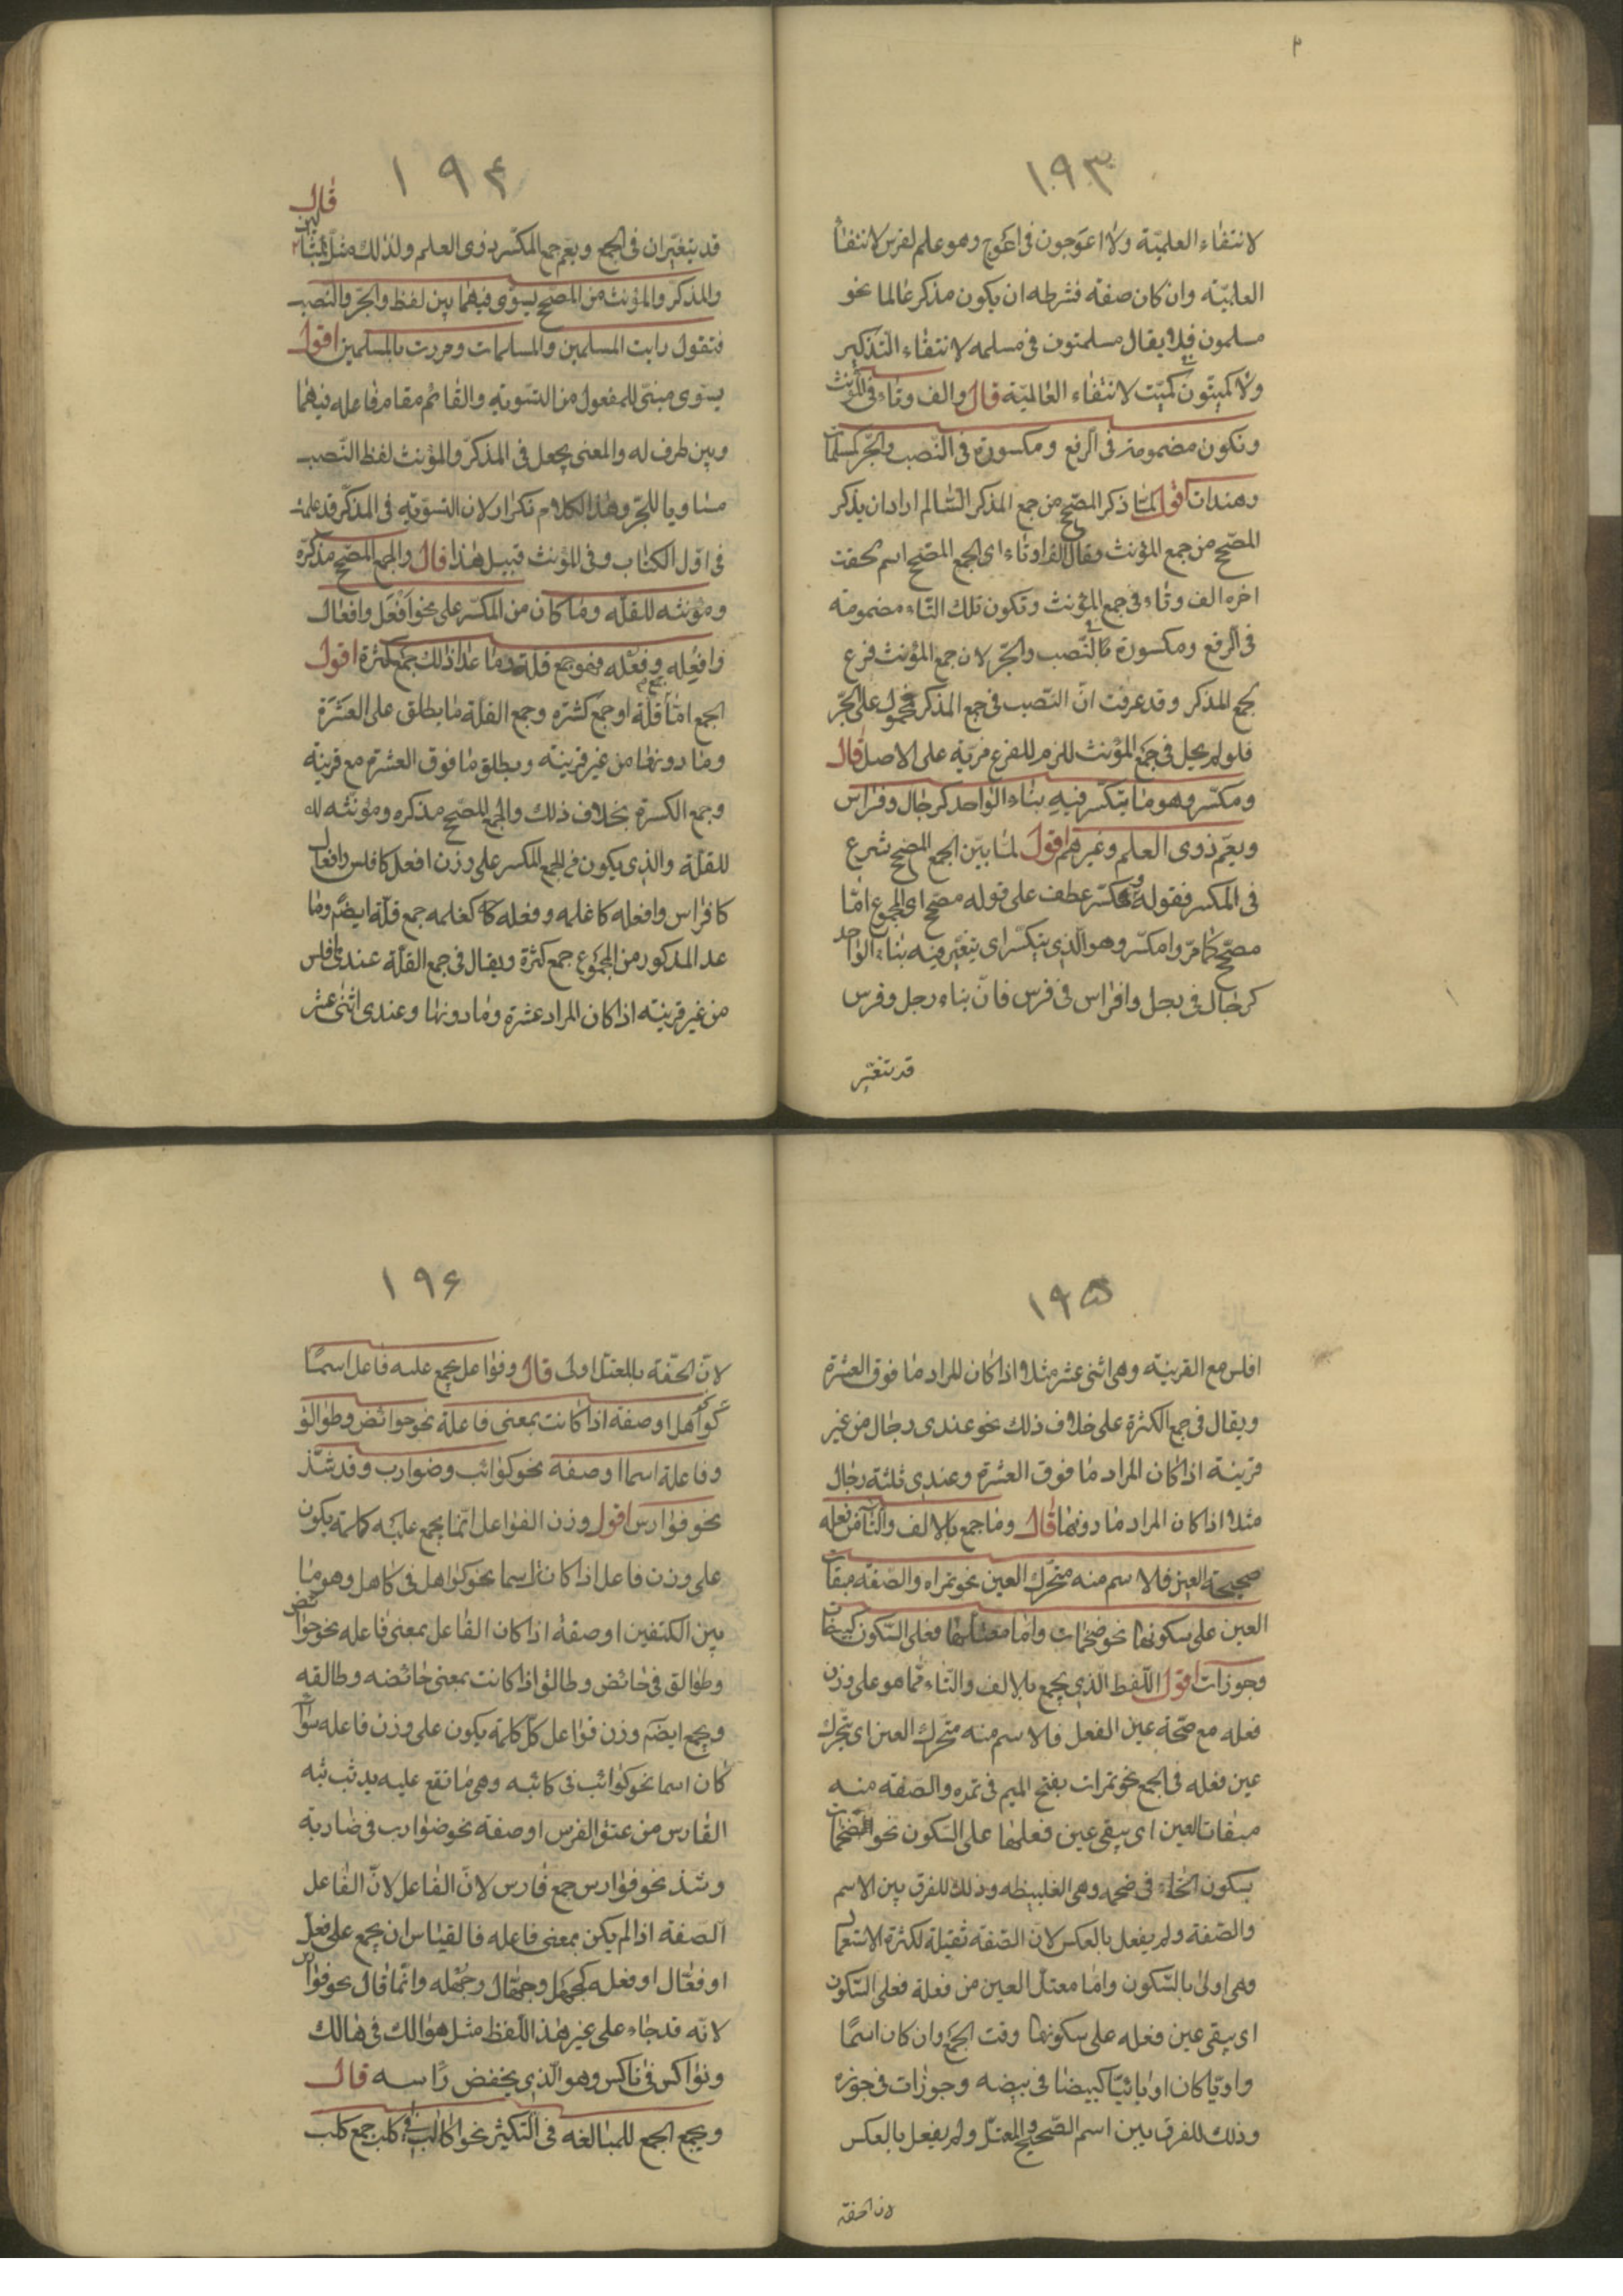 ۱۹۳
لانتفاء العلمیّة ولا اعوجون فی اعوج وهو علم لفرس لانتفاء
العلمیّة وان کان صفة فشرطه ان یکون مذکر عالما نحو
مسلمون فلا یقال مسلمتون فی مسلمه لانتفاء التذکیر
ولا کمیتون کمیّت لانتفاء العالمیّة قال والف وتاء فی المؤنث
وتکون مضمومة فی الرفع ومکسورة فی النّصب والجّر کمسلمات
وهندات اقول لمّا ذکر المصّحح من جمع المذکر السّالم اراد ان یذکر
المصّحح من جمع المؤنث وقال الف وتاء ای الجمع المصّحح اسم لحقت
اخره الف وتاء فی جمع المؤنث وتکون تلک التّاء مضمومة
فی الرفع ومکسورة فی النّصب والجّر لان جمع المؤنث فرع
لجمع المذکر وقد عرفت انّ النّصب فی جمع المذکر محمول علی الجّر
فلو لم یحمل فی جمع المؤنث للزم للفرع مزیّة علی الاصل قال
ومکسّر وهو ما یتکسّر فیه بناء الواحد کرجال وفراس
ویعمّ ذوی العلم وغیرهم اقول لمّا بیّن الجمع المصّحح شرع
فی المکسر فقوله ومکسّر عطف علی قوله مصّحح ای المجموع امّا
مصّحح کما مرّ وامکسّر وهو الّذی یتکسّر ای یتغیّر فیه بناء الواحد
کرجال فی رجل وافراس فی فرس فانّ بناء رجل وفرس
قد یتغیّر
۱۹۴
قال
قد یتغیّران فی الجمع ویعم جمع المکسّر ذوی العلم ولذلک مثل بمثالین
والمذکّر والمؤنث من المصّحح یسوّی فیهما بین لفظ والجّر والنّصب
فتقول رایت المسلمین والمسلمات ومررت بالمسلمین اقول
یسوّی مبنیّ للمفعول من التسویة والقائم مقام فاعله فیهما
وبین ظرف له والمعنی یجعل فی المذکّر والمؤنث لفظ النّصب
مساویا للجّر وهذا الکلام تکرار لان التسوّیة فی المذکّر قد علمت
فی اوّل الکتاب وفی المؤنث قبیل هذا قال والجمع المصّحح مذکّره
ومؤنثه للقلّه وما کان من المکسّر علی نحو افعل وافعال
وافعله وفعله فهو جمع قلة وما عدا ذلک جمع کثرة اقول
الجمع امّا جمع قلّة او جمع کشره وجمع القلة ما یطلق علی العشرة
وما دونها من غیر قرینة ویطلق ما فوق العشرة مع قرینة
وجمع الکسرة بخلاف ذلک والجمع المصّحح مذکره ومونثه له
للقلّة والذی یکون فی الجمع المکسر علی وزن افعل کافلس وافعال
کافراس وافعله کاغلمه وفعله کغلمه جمع قلّة ایضًا وما
عد المذکور من المجموع جمع کثرة ویقال فی جمع القلّة عندی افلس
من غیر قرینة اذا کان المراد عشرة وما دونها وعندی اثنی عشر
۱۹۵
افلس مع القرینة وهی اثنی عشر مثلا اذا کان المراد ما فوق العشرة
ویقال فی جمع الکثرة علی خلاف ذلک نحو عندی رجال من غیر
قرینة اذا کان المراد ما فوق العشرة وعندی ثلثة رجال
مثلا اذا کان المراد ما دونها قال وما جمع بالالف والتّاء من فعله
صحیحة العین فلا سم منه متحّرک العین نحو تمراه والصّفه مبقات
العین علی سکونها نحو ضخمات وامّا معتلها فعلی السّکون کبیضات
وجوزات اقول اللّفظ الّذی یجمع بالالف والتّاء ممّا هو علی وزن
فعله مع صّحة عین الفعل فلا سم منه متّحرک العین ای یتّحرک
عین فعله فی الجمع نحو تمرات بفتح المیم فی تمره والصّفة منه
مبقات العین ای یبقی عین فعلها علی السّکون نحو الضخمات
بسکون الخاء فی ضخمه وهی الغلییظه وذلک للفرق بین الاسم
والصّفة ولم یفعل بالعکس لانّ الصّفة ثقیلة لکثرة الاستعمال
وهی اولی بالسّکون وامّا معتلّ العین من فعلة فعلی السّکون
ای یبقی عین فعله علی سکونها وقت الجمع وان کان اسمًا
واویّا کان او یائیّا کبیضا فی بیضه وجوزات فی جوزه
وذلک للفرق بین اسم الصّحیح والمعتلّ ولم یفعل بالعکس
لانّ الخفّة
۱۹۶
لانّ الخفّة بالمعتلّ اولی قال وفواعل یجمع علیه فاعل اسمًا
نحو کواهل او صفة اذا کانت بمعنی فاعلة نحو حوائض وطوالق
وفاعلة اسما او صفه نحو کواثب وضوارب وقد شذّ
نحو فوارس اقول وزن الفواعل انّما یجمع علیه کلمة یکون
علی وزن فاعل اذا کانت اسما نحو کواهل فی کاهل وهو ما
بین الکتفین او صفة اذا کان الفاعل بمعنی فاعله نحو حوائض
وطوالق فی حائض وطالق اذا کانت بمعنی حائضه وطالقه
ویجمع ایضًا وزن فواعل کلّ کلمة یکون علی وزن فاعله سواء
کان اسما نحو کواثب فی کاثبه وهی ما تقع علیه ید
الفارس من عنق الفرس او صفة نحو ضوارب فی ضاربة
وشذ نحو فوارس جمع فارس لانّ الفاعل لانّ الفاعل
الصّفة اذا لم یکن بمعنی فاعله فالقیاس ان یجمع علی فعل
او فعّال او فعله کجهّل وجهّال وجهله وانّما قال نحو فوارس
لانّه قد جاء علی غیر هذا اللّفظ مثل هوالک فی هالک
ونواکس فی ناکس وهو الّذی یخفض راسه قال
ویجمع الجمع للمبالغه فی التّکثیر نحو اکالب فی کلب جمع کلب